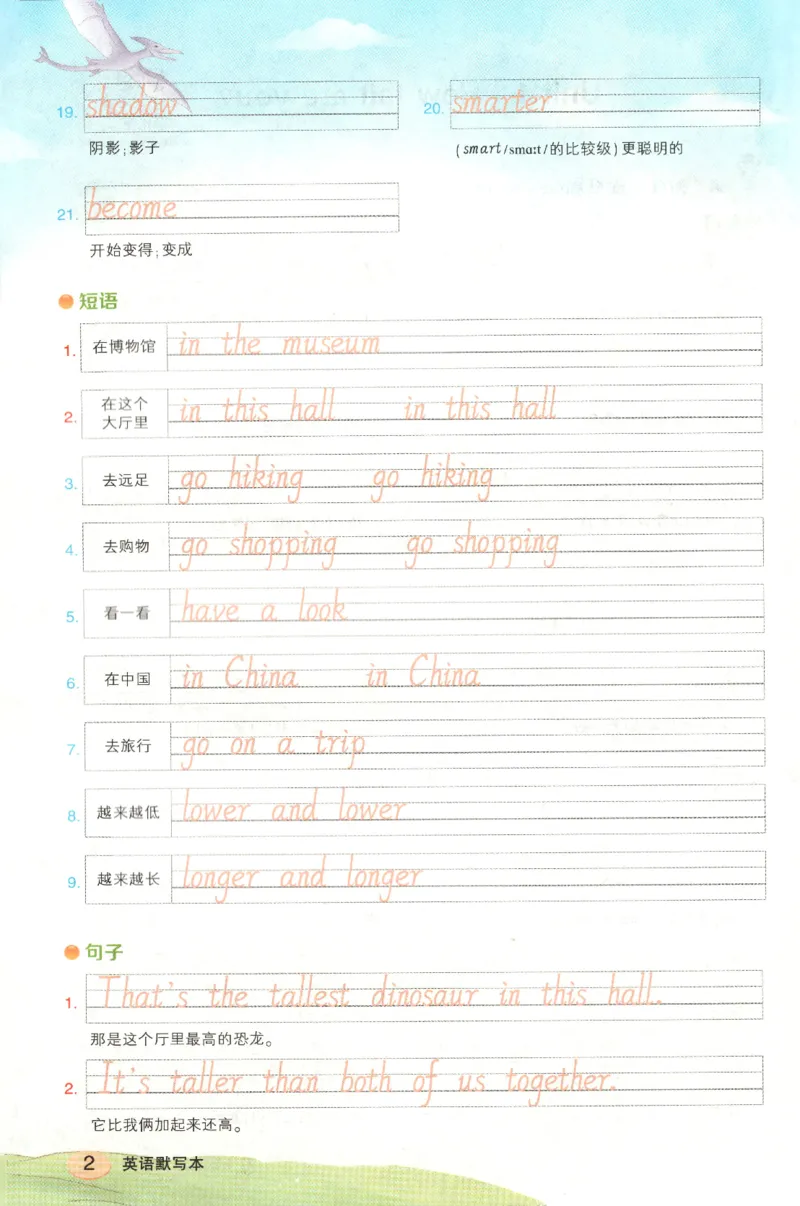 19. shadow 20. smarter
阴影;影子 (smart/smɑːt/的比较级)更聪明的
21. become
开始变得;变成
短语
1. 在博物馆 in the museum
2. 在这个大厅里 in this hall in this hall
3. 去远足 go hiking go hiking
4. 去购物 go shopping go shopping
5. 看一看 have a look
6. 在中国 in China in China
7. 去旅行 go on a trip
8. 越来越低 lower and lower
9. 越来越长 longer and longer
句子
1. That's the tallest dinosaur in this hall.
那是这个厅里最高的恐龙。
2. It's taller than both of us together.
它比我俩加起来还高。
2 英语默写本